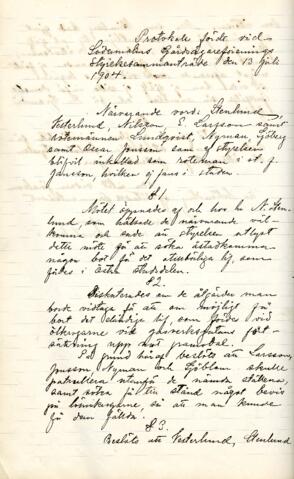 Protokoll fördt vid
Södermalms Gårdsägareförenings
Styrelsesammanträde den 13 Juli
1904.
Närvarande vordo: Stenlund
Vesterlund, Nilsson, E. Larsson samt
rotemännen Lundqvist, Nyman, Sjöberg
samt Oscar Jonsson som af styrelsen
blifvit inkallad som roteman i st. f.
Jansson, hvilken ej fans i staden.
§ 1.
Mötet öppnades af och hos hr N. Sten-
lund, som hälsade de närvarande väl-
komna och sade att styrelsen utlyst
detta möte för att söka åstadkomma
någon bot för det
Östra stadsdelen.
§ 2.
Diskuterades om de åtgärder man
borde vidtaga för att om möjligt få
bort det eländiga lif som fördes vid
ölkorgarne vid gasverkstomtens fort-
sättning upp mot
På grund häraf beslöts att Larsson,
Jonsson, Nyman och Sjöblom skulle
patrullera utanför de nämda ställena,
samt söka få till stånd något bevis
på lönnkrögarne, så att man kunde
få dem fällda.
§ 3.
Beslöts att Vesterlund, Stenlund